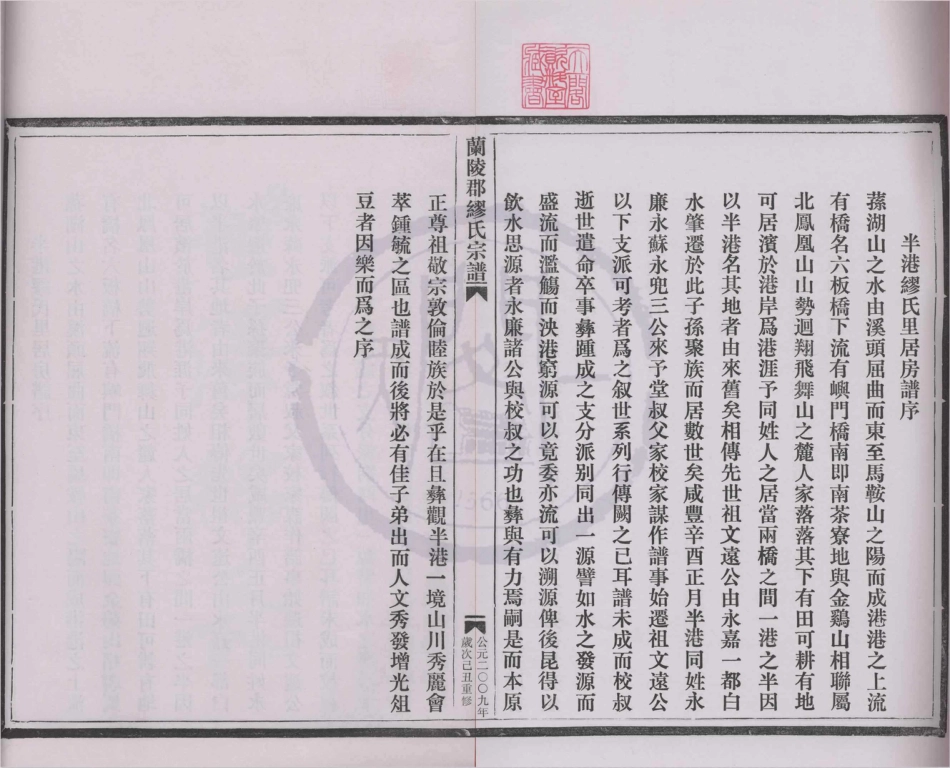 半港繆氏里居房譜序
蕬湖山之水由溪頭屈曲而東至馬鞍山之陽而成港港之上流
有橋名六板橋下流有嶼門橋南即南茶寮地與金鷄山相聯屬
北鳳凰山山勢迴翔飛舞山之麓人家落落其下有田可耕有地
可居濱於港岸爲港涯予同姓人之居當兩橋之間一港之半因
以半港名其地者由來舊矣相傳先世祖文遠公由永嘉一都白
水肇遷於此子孫聚族而居數世矣咸豐辛酉正月半港同姓永
廉永蘇永兜三公來予堂叔父家校家謀作譜事始遷祖文遠公
以下支派可考者爲之叙世系列行傳闕之已耳譜未成而校叔
逝世遣命卒事彝踵成之支分派别同出一源譬如水之發源而
盛流而濫觴而泱港窮源可以竟委亦流可以溯源俾後昆得以
飲水思源者永廉諸公與校叔之功也彝與有力焉嗣是而本原
蘭陵郡繆氏宗譜
一
公元二〇〇九年
歲次己丑重修
正尊祖敬宗敦倫睦族於是乎在且彝觀半港一境山川秀麗會
萃鍾毓之區也譜成而後將必有佳子弟出而人文秀發增光俎
豆者因樂而爲之序